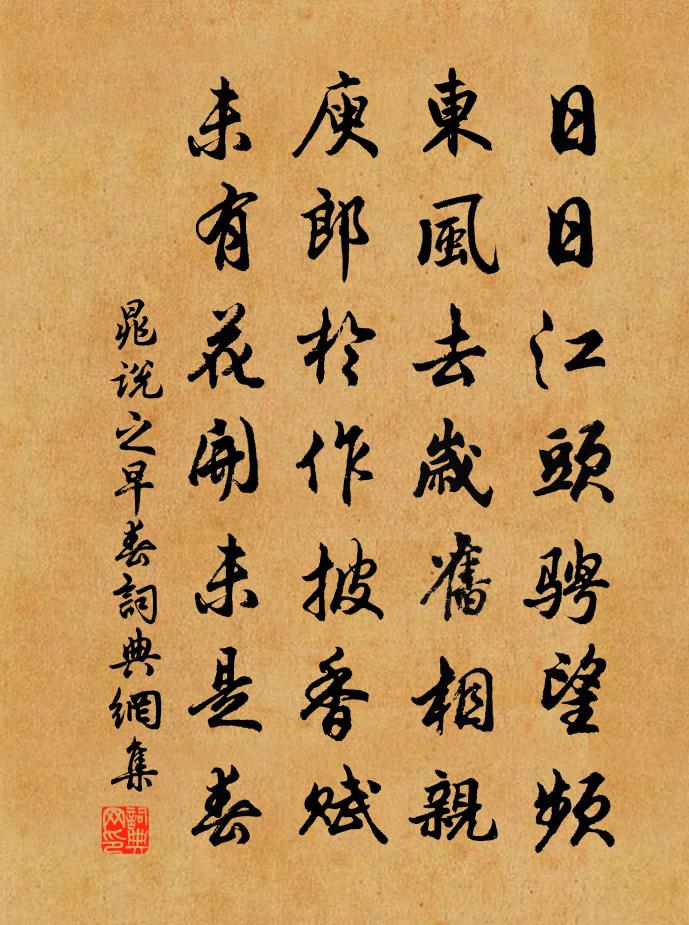 日日江頭騁望頻
東風去歲舊相親
庾郎於作披香賦
未有花開未是春
晁說之早春詞典網集
詞典网印